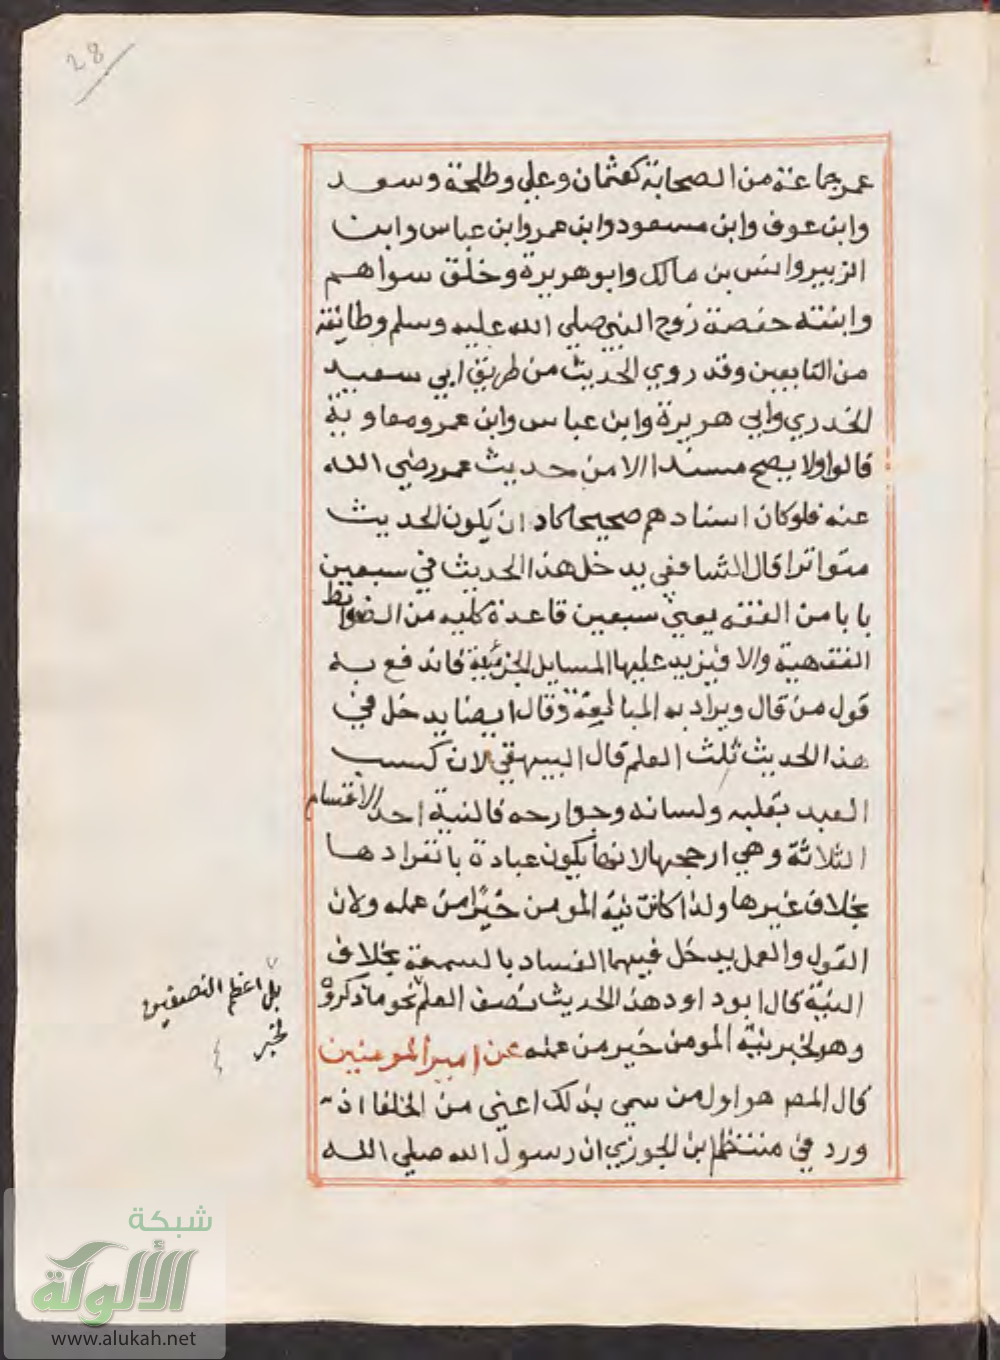 28
عمر جماعة من الصحابة كعثمان وعلي وطلحة وسعد
وابن عوف وابن مسعود وابن عمر وابن عباس وابن
الزبير وانس بن مالك وابو هريرة وخلق سواهم
وابنته حفصة زوج النبي صلي الله عليه وسلم وطائفة
من التابعين وقد روي الحديث من طريق ابي سعيد
الخدري وابي هريرة وابن عباس وابن عمر ومعاوية
قالوا ولا يصح مسندا الا من حديث عمر رضي الله
عنه فلو كان اسنادهم صحيحا كاد ان يكون الحديث
متواترا قال الشافعي يدخل هذا الحديث في سبعين
بابا من الفقه يعني سبعين قاعدة كليه من الضوابط
الفقهية والا فيزيد عليها المسايل الجزئية فاندفع به
قول من قال ويراد به المبالغة وقال ايضا يدخل في
هذا الحديث ثلث العلم قال البيهقي لان كسب
العبد بقلبه ولسانه وجوارحه فالنية احد الاقسام
الثلاثة وهي ارجحها لانها يكون عبادة بانفرادها
بخلاف غيرها ولذا كانت نية المومن خيرا من عمله ولان
القول والعمل يدخل فيهما الفساد بالسمعة بخلاف
النية قال ابو داود هذا الحديث نصف العلم نحو ما ذكروه
وهو لخبر نية المومن خير من عمله عن امير المومنين
قال المص هو اول من سمي بذلك اعني من الخلفا اذ
ورد في منتظم ابن الجوزي ان رسول الله صلي الله
بل اعظم النصفين
لخبر
شبكة
الألوكة
www.alukah.net